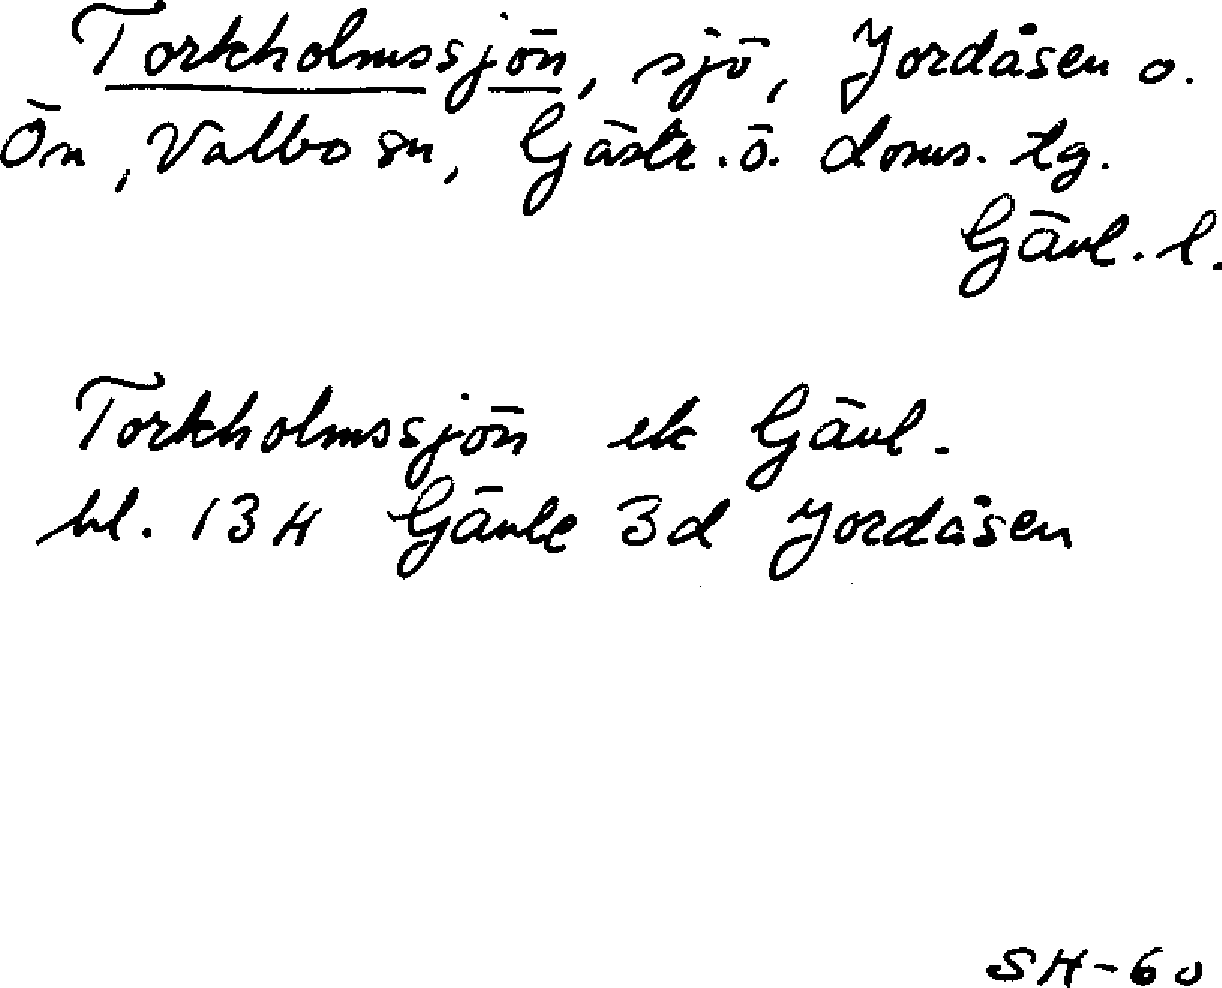 Torkholmssjön, sjö, Jordåsen o.
Ön, Valbo sn, Gästr. ö. doms. tg.
Gävl. l.
Torkholmssjön ek Gävl.
bl. 13H Gävle 3d Jordåsen
SH-60